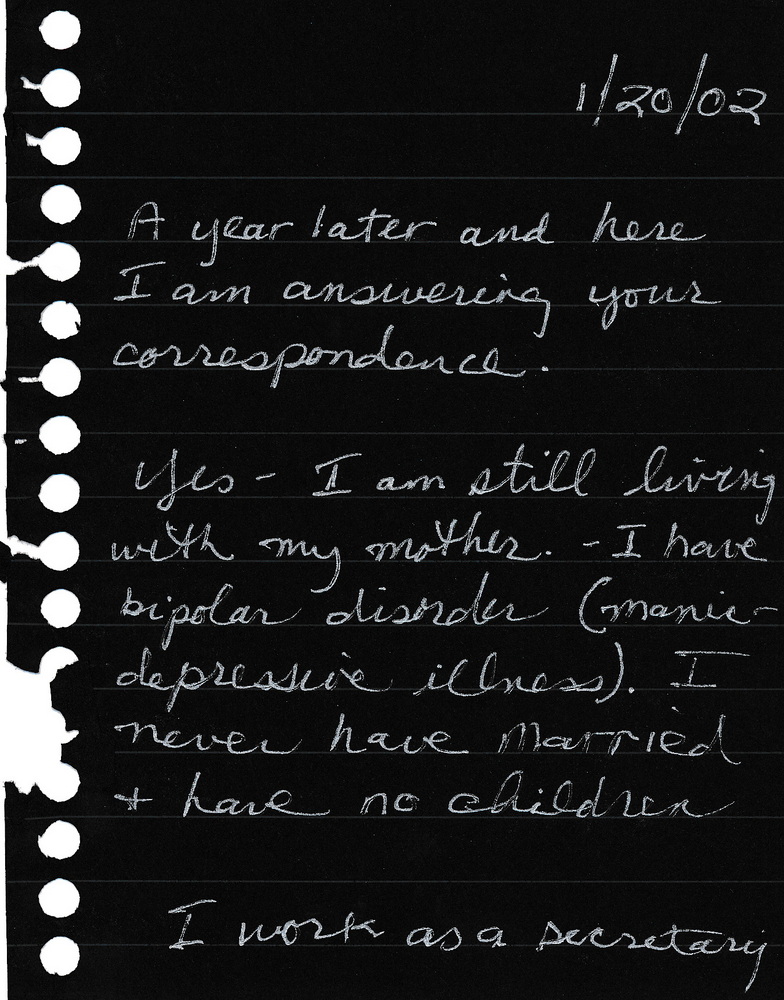 1/20/02
A year later and here
I am answering your
correspondence.
Yes - I am still living
with my mother. - I have
bipolar disorder (manic-
depressive illness). I
never have married
+ have no children
I work as a secretary